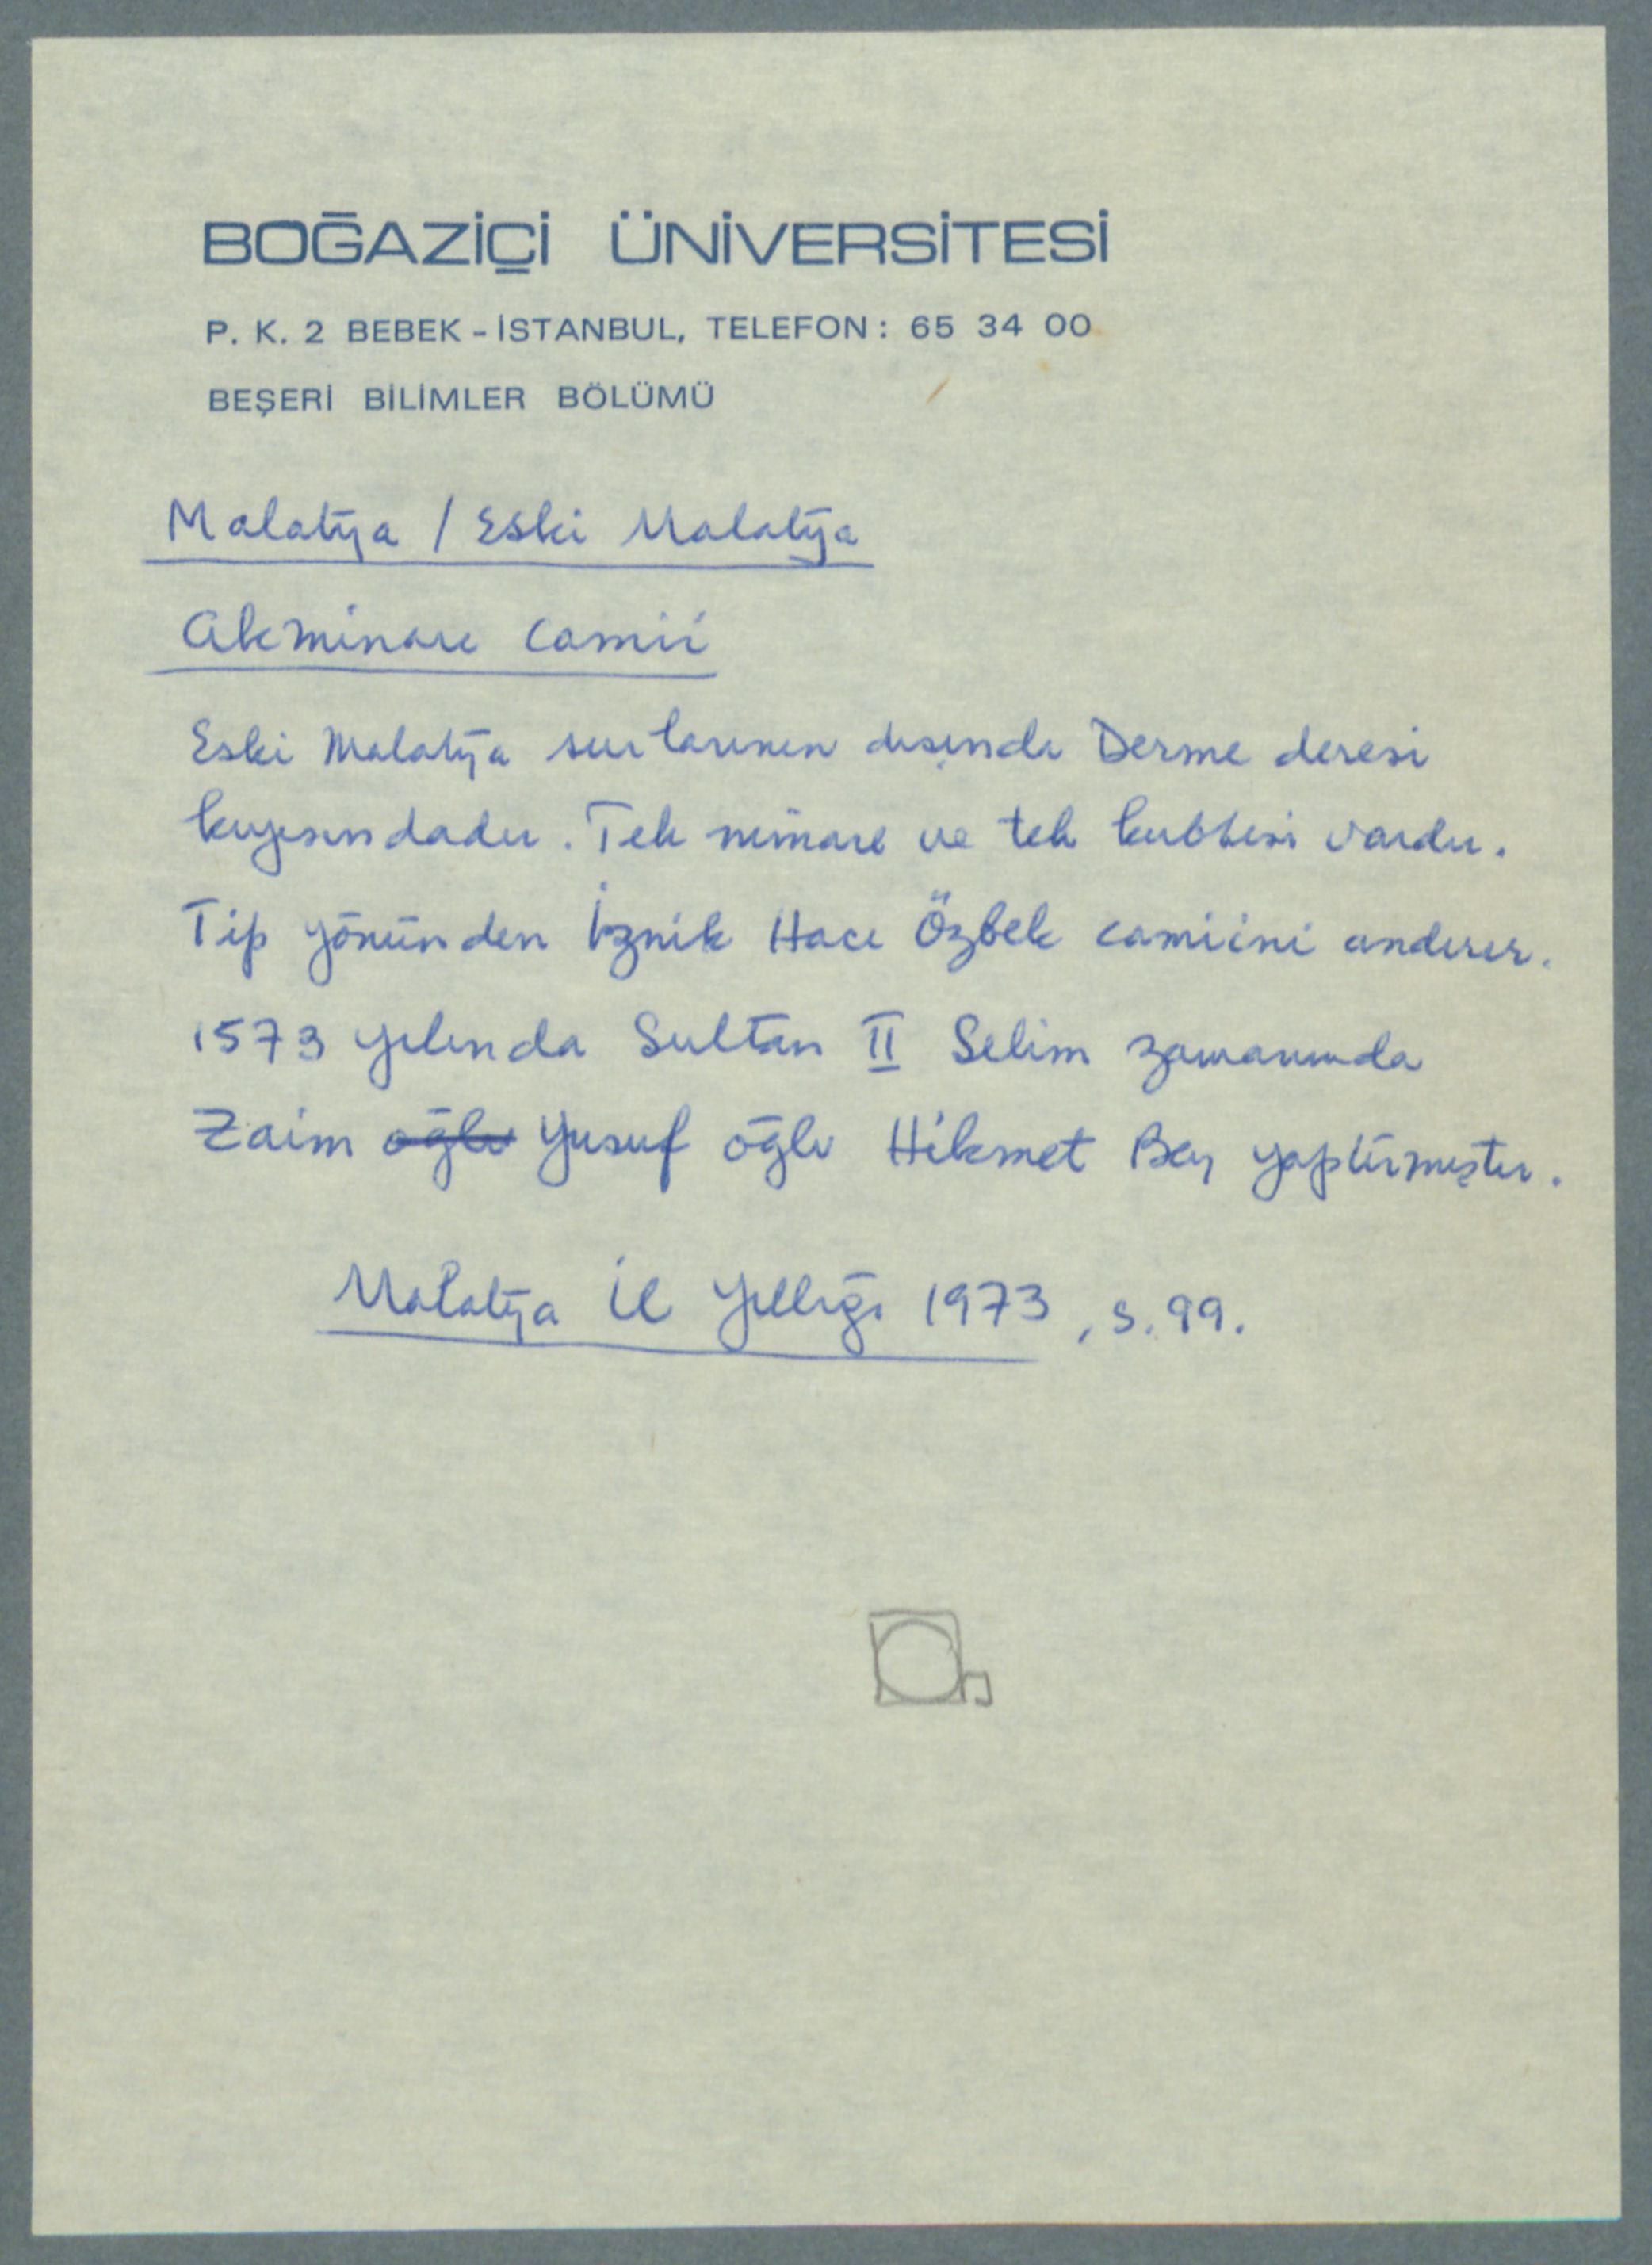 BOĞAZİÇİ ÜNİVERSİTESİ
P. K. 2 BEBEK - İSTANBUL, TELEFON: 65 34 00
BEŞERİ BİLİMLER BÖLÜMÜ
Malatya / Eski Malatya
Akminare Camii
Eski Malatya surlarının dışında Derme deresi
kıyısındadır. Tek minare ve tek kubbesi vardır.
Tip yönünden İznik Hacı Özbek camiini andırır.
1573 yılında Sultan II Selim zamanında
Zaim oğlu Yusuf oğlu Hikmet Bey yaptırmıştır.
Malatya İl Yıllığı 1973, s. 99.